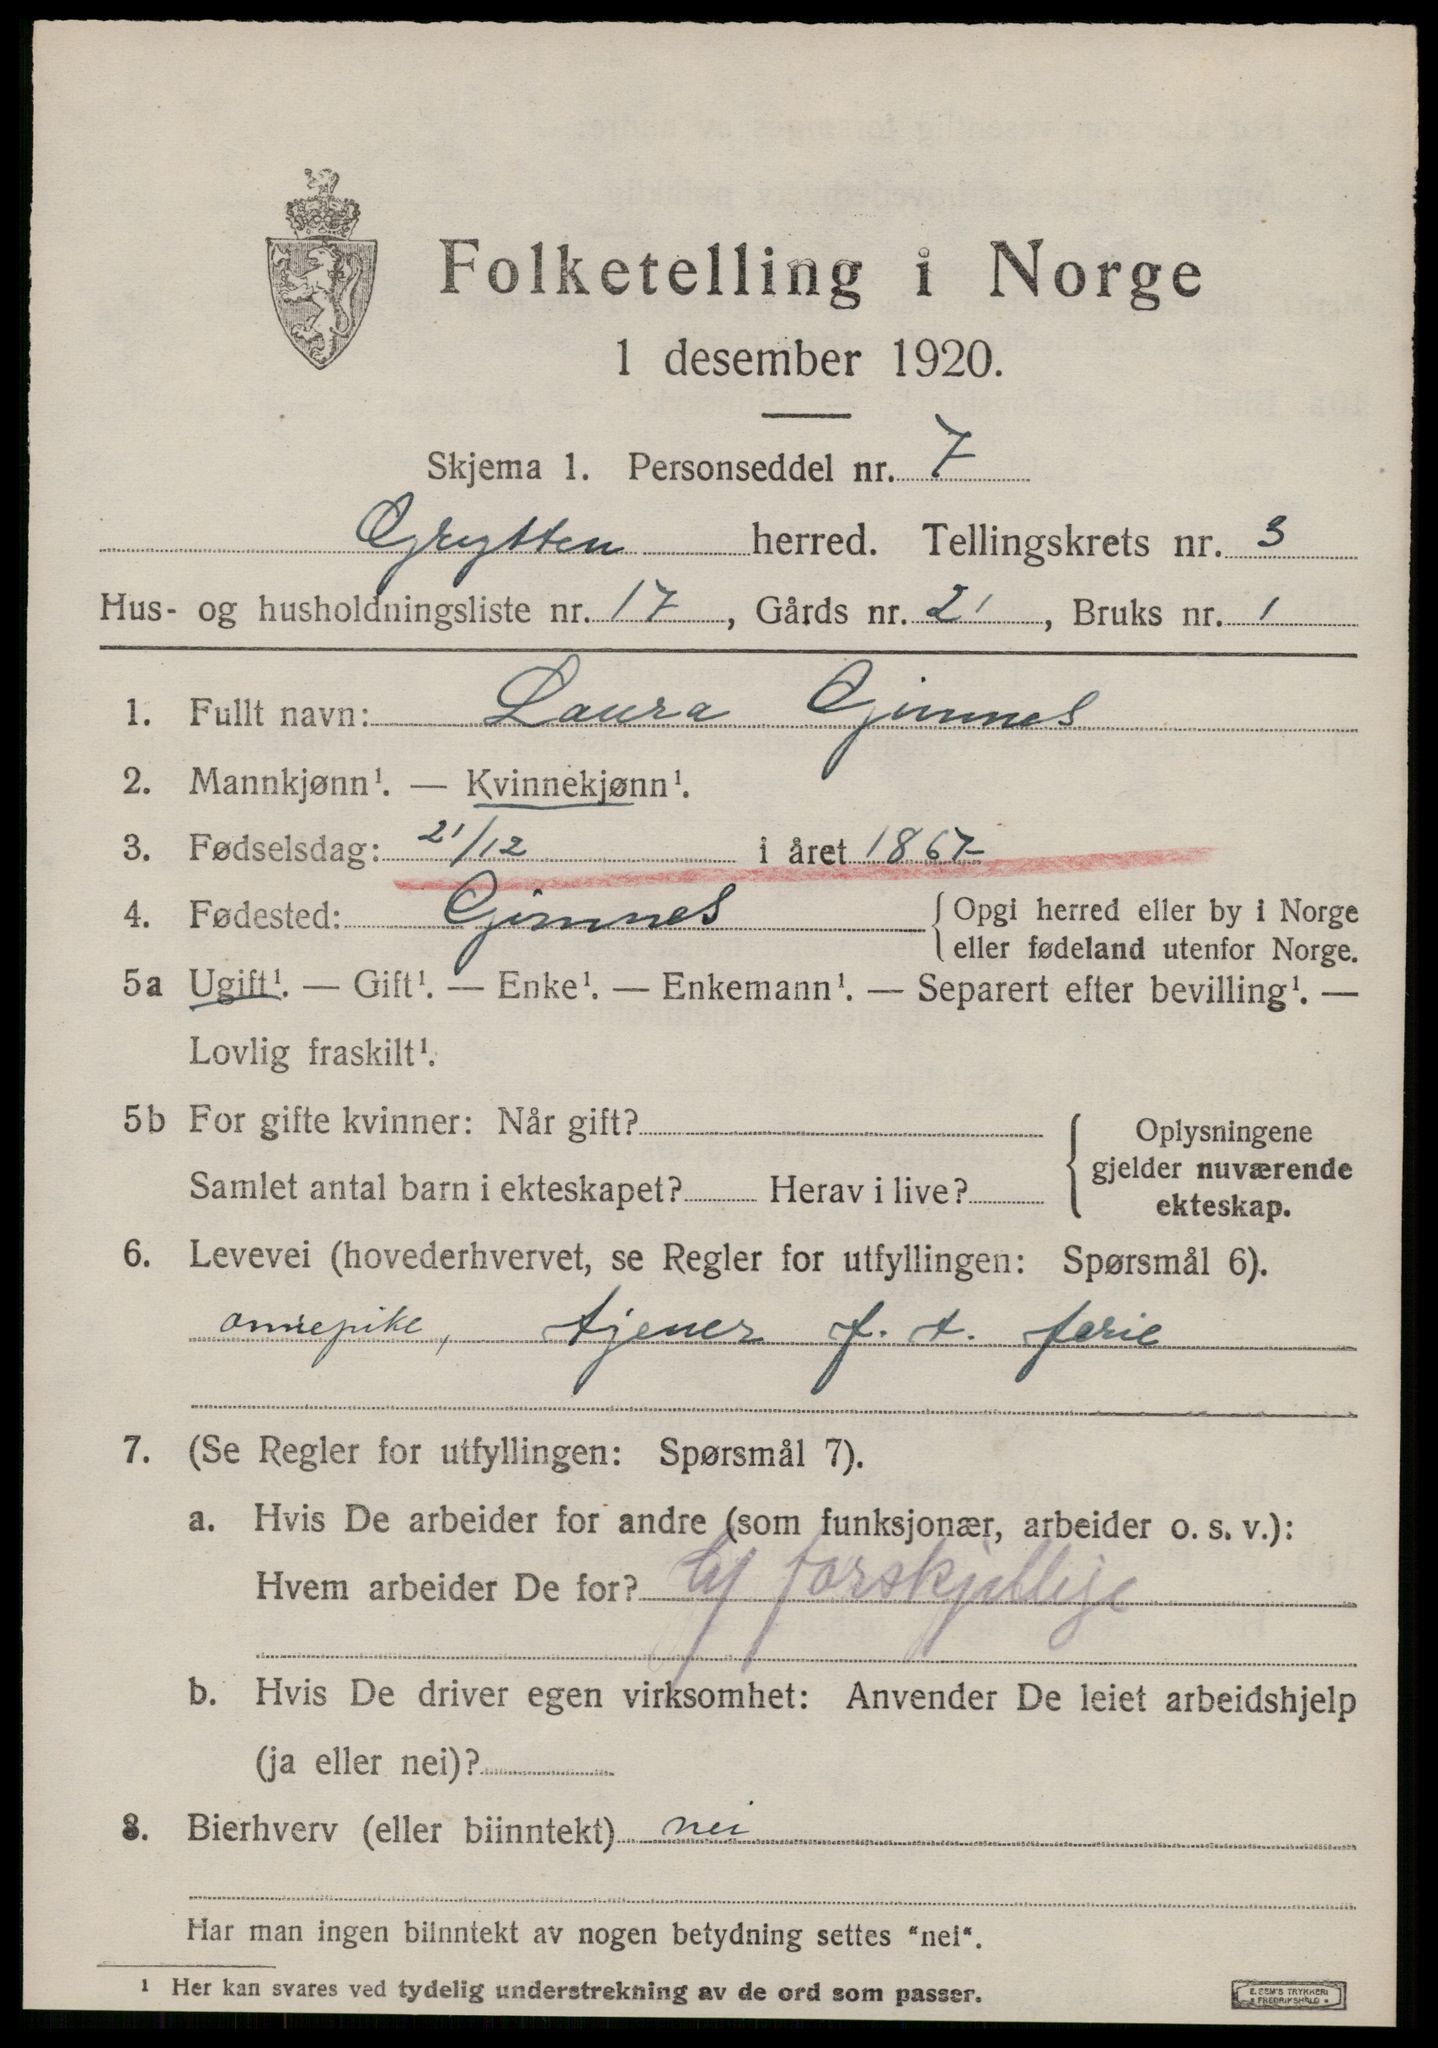 Folketelling i Norge
1 desember 1920.
Skjema 1. Personseddel nr. 7
Grytten herred. Tellingskrets nr. 3
Hus- og husholdningsliste nr. 17, Gårds nr. 21, Bruks nr. 1
1. Fullt navn: Laura Gjimnes
2. Mannkjønn¹. — Kvinnekjønn¹.
3. Fødselsdag: 21/12 i året 1867
4. Fødested: Gjimnes {Opgi herred eller by i Norge
eller fødeland utenfor Norge.
5a Ugift¹. — Gift¹. — Enke¹. — Enkemann¹. — Separert efter bevilling¹. —
Lovlig fraskilt¹.
5b For gifte kvinner: Når gift?
Samlet antal barn i ekteskapet? Herav i live?
{Oplysningene
gjelder nuværende
ekteskap.
6. Levevei (hovederhvervet, se Regler for utfyllingen: Spørsmål 6).
tjener f. t. ferie
7. (Se Regler for utfyllingen: Spørsmål 7).
a. Hvis De arbeider for andre (som funksjonær, arbeider o. s. v.):
Hvem arbeider De for? forskjellige
b. Hvis De driver egen virksomhet: Anvender De leiet arbeidshjelp
(ja eller nei)?
8. Bierhverv (eller biinntekt) nei
Har man ingen biinntekt av nogen betydning settes "nei".
1 Her kan svares ved tydelig understrekning av de ord som passer.
E. SEM'S TRYKKERI
FREDRIKSHALD